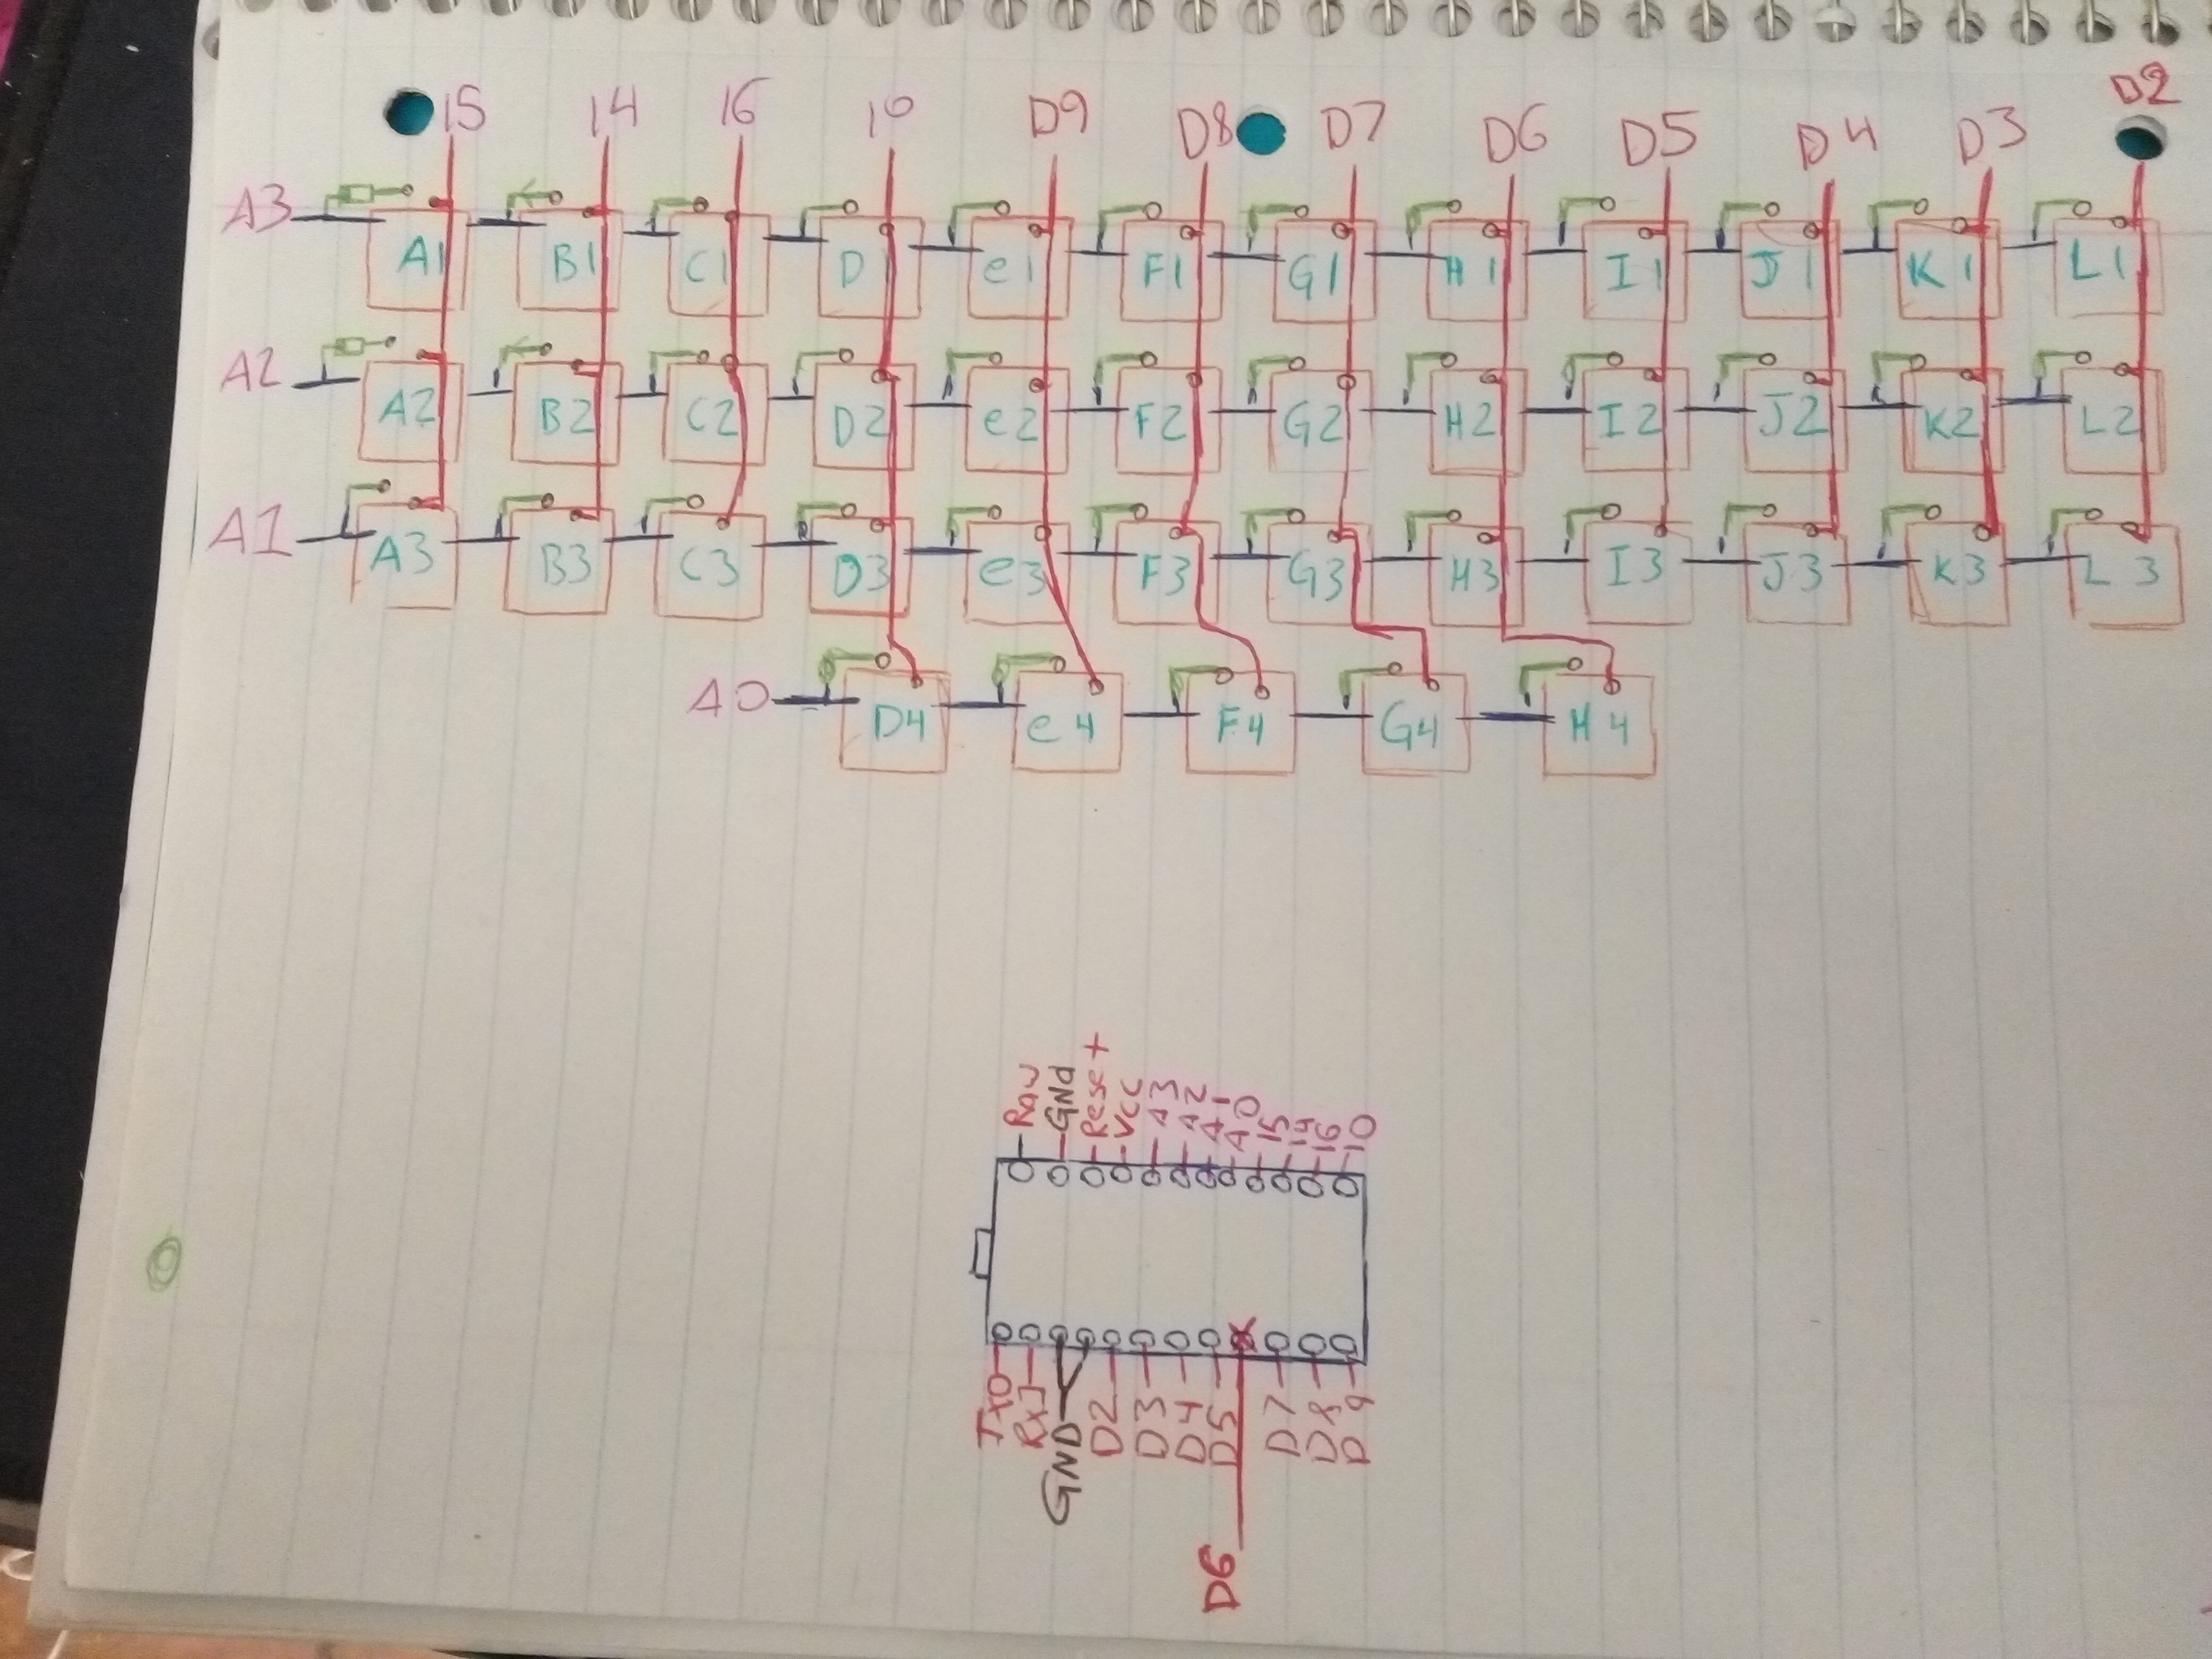 15 14 16 10 D9 D8 D7 D6 D5 D4 D3 D2
A3 A1 B1 C1 D e1 F1 G1 H1 I1 J1 K1 L1
A2 A2 B2 C2 D2 e2 F2 G2 H2 I2 J2 K2 L2
A1 A3 B3 C3 D3 e3 F3 G3 H3 I3 J3 K3 L3
A0 D4 e4 F4 G4 H4
Raw GNd Reset VCC A3 A2 A1 A0 15 14 16 10
TX0 RX1 GND D2 D3 D4 D5 D6 D7 D8 D9